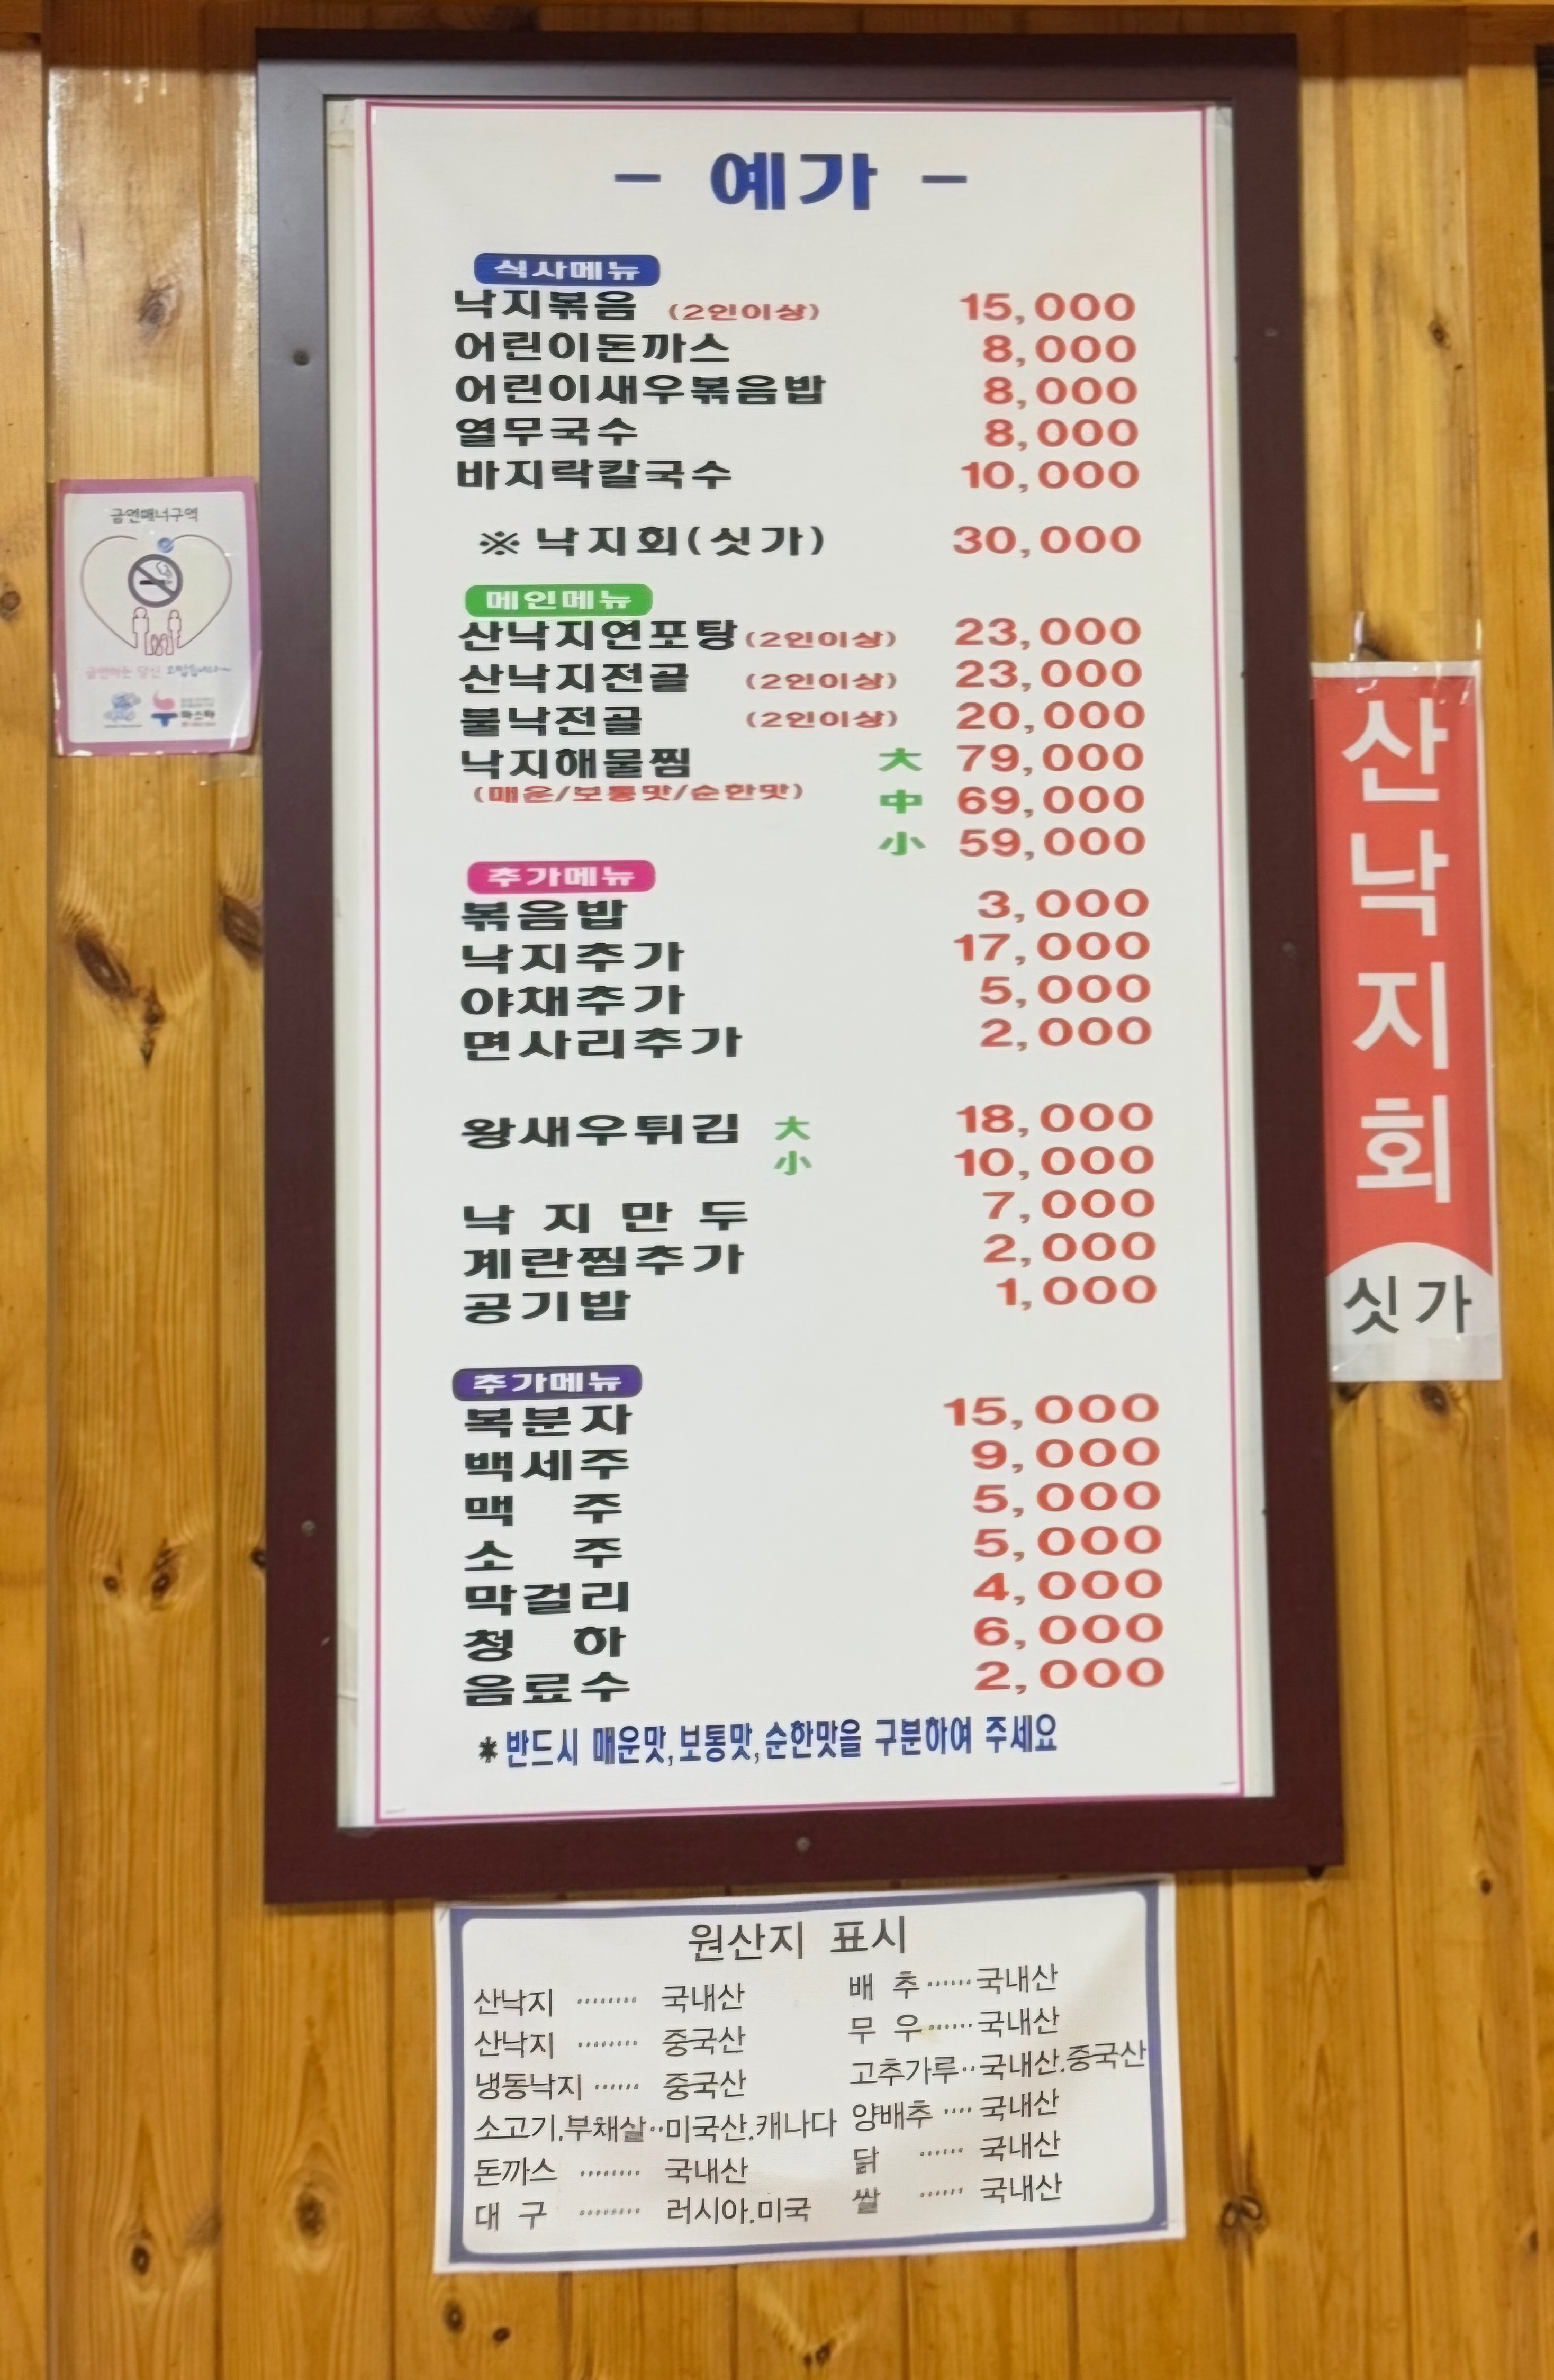 - 예가 -
식사메뉴
낙지볶음 (2인이상) 15,000
어린이돈까스 8,000
어린이새우볶음밥 8,000
열무국수 8,000
바지락칼국수 10,000
※ 낙지회(싯가) 30,000
메인메뉴
산낙지연포탕(2인이상) 23,000
산낙지전골 (2인이상) 23,000
불낙전골 (2인이상) 20,000
낙지해물찜 大 79,000
(매운/보통맛/순한맛) 中 69,000
小 59,000
추가메뉴
볶음밥 3,000
낙지추가 17,000
야채추가 5,000
면사리추가 2,000
왕새우튀김 大 18,000
小 10,000
낙 지 만 두 7,000
계란찜추가 2,000
공기밥 1,000
추가메뉴
복분자 15,000
백세주 9,000
맥 주 5,000
소 주 5,000
막걸리 4,000
청 하 6,000
음료수 2,000
*반드시 매운맛,보통맛,순한맛을 구분하여 주세요
금연매너구역
금연하는 당신
산낙지회
싯가
원산지 표시
산낙지 ········ 국내산
산낙지 ········ 중국산
냉동낙지 ······ 중국산
소고기.부채살··미국산.캐나다
돈까스 ········ 국내산
대 구 ········ 러시아.미국
배 추 ······국내산
무 우······국내산
고추가루··국내산.중국산
양배추 ···· 국내산
닭 ······ 국내산
쌀 ······ 국내산